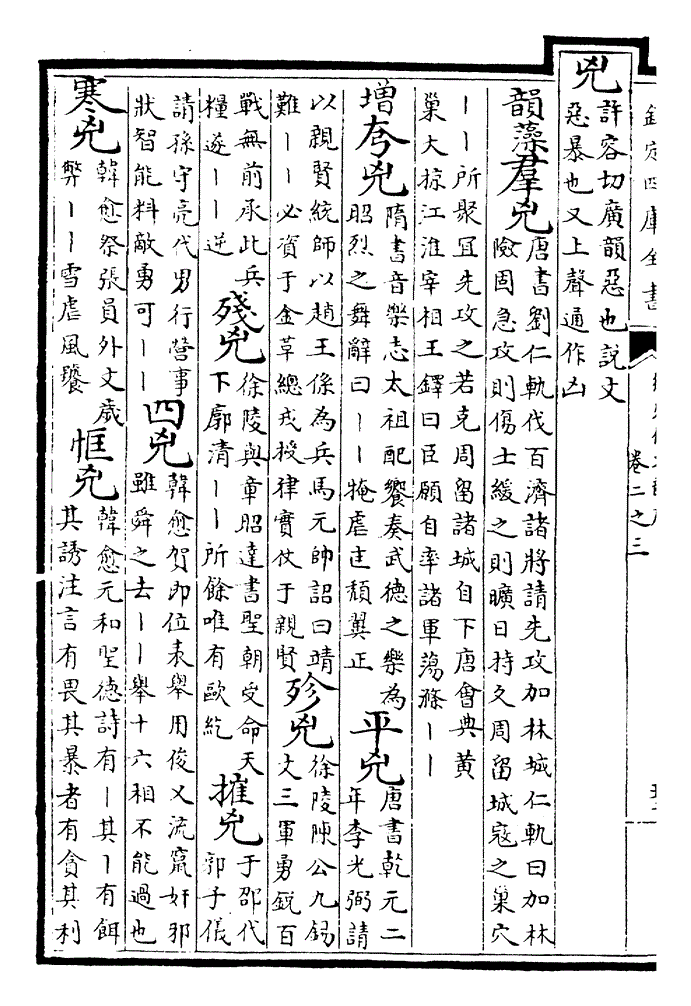 欽定四庫全書
卷二之三
兇
許容切廣韻惡也説文
惡暴也又上聲通作凶
韻藻羣兇
唐書劉仁軌伐百濟諸將請先攻加林城仁軌曰加林
險固急攻則傷士緩之則曠日持久周留城寇之巢穴
丨丨所聚宜先攻之若克周留諸城自下唐會典黄
巢大掠江淮宰相王鐸曰臣願自率諸軍蕩滌丨丨
増夸兇
隋書音樂志太祖配饗奏武德之樂為
昭烈之舞辭曰丨丨掩虐匡頽翼正
平兇
唐書乾元二
年李光弼請
以親賢統師以趙王係為兵馬元帥詔曰靖
難丨丨必資于金革總戎授律實仗于親賢
殄兇
徐陵陳公九錫
文三軍勇鋭百
戰無前承此兵
糧遂丨丨逆
殘兇
徐陵與章昭達書聖朝受命天
下廓清丨丨所餘唯有歐紇
摧兇
于邵代
郭子儀
請孫守亮代男行營事
狀智能料敵勇可丨丨
四兇
韓愈賀即位表舉用俊乂流竄奸邪
雖舜之去丨丨舉十六相不能過也
寒兇
韓愈祭張員外文歲
弊丨丨雪虐風饕
恇兇
韓愈元和聖德詩有丨其丨有餌
其誘注言有畏其暴者有貪其利